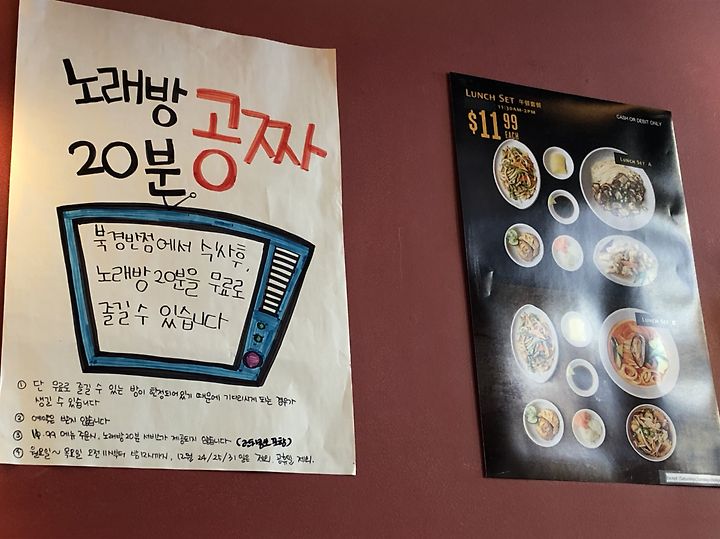 노래방 공짜
20분
북경반점에서 식사후,
노래방 20분을 무료로
즐길 수 있습니다
① 단 무료로 즐길 수 있는 방이 한정되어있기 때문에 기다리시게 되는 경우가
생길 수 있습니다
② 예약은 받지 않습니다
③ 메뉴 주문시, 노래방 20분 서비스가 제공되지 않습니다
④ 월요일~ 목요일 오전 11시부터 밤 12시까지, 12월 24/25/31일은 제외, 공휴일 제외.
LUNCH SET 午餐套餐
11:30AM-2PM
CASH OR DEBIT ONLY
$11.99
EACH
LUNCH SET A
LUNCH SET B